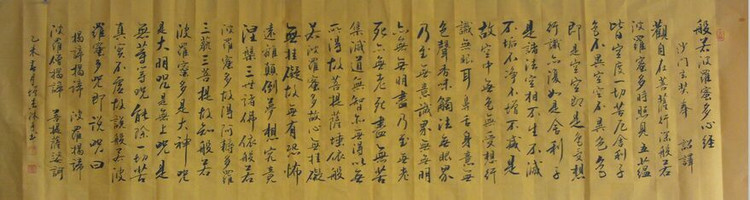 般若波羅蜜多心經
沙門玄奘奉 詔譯
觀自在菩薩行深般若
波羅蜜多時照見五蘊
皆空度一切苦厄舍利子
色不異空空不異色色
即是空空即是色受想
行識亦復如是舍利子
是諸法空相不生不滅
不垢不淨不增不減是
故空中無色無受想行
識無眼耳鼻舌身意無
色聲香味觸法無眼界
乃至無意識界無無明
亦無無明盡乃至無老
死亦無老死盡無苦
集滅道無智亦無得以無
所得故菩提薩埵依般
若波羅蜜多故心無挂礙
無挂礙故無有恐怖
遠離顛倒夢想究竟
涅槃三世諸佛依般若
波羅蜜多故得阿耨多羅
三藐三菩提故知般若
波羅蜜多是大神呪
是大明呪是無上呪是
無等等呪能除一切苦
真實不虛故說般若波
羅蜜多呪即說呪曰
揭諦揭諦 波羅揭諦
波羅僧揭諦 菩提薩婆訶
乙未